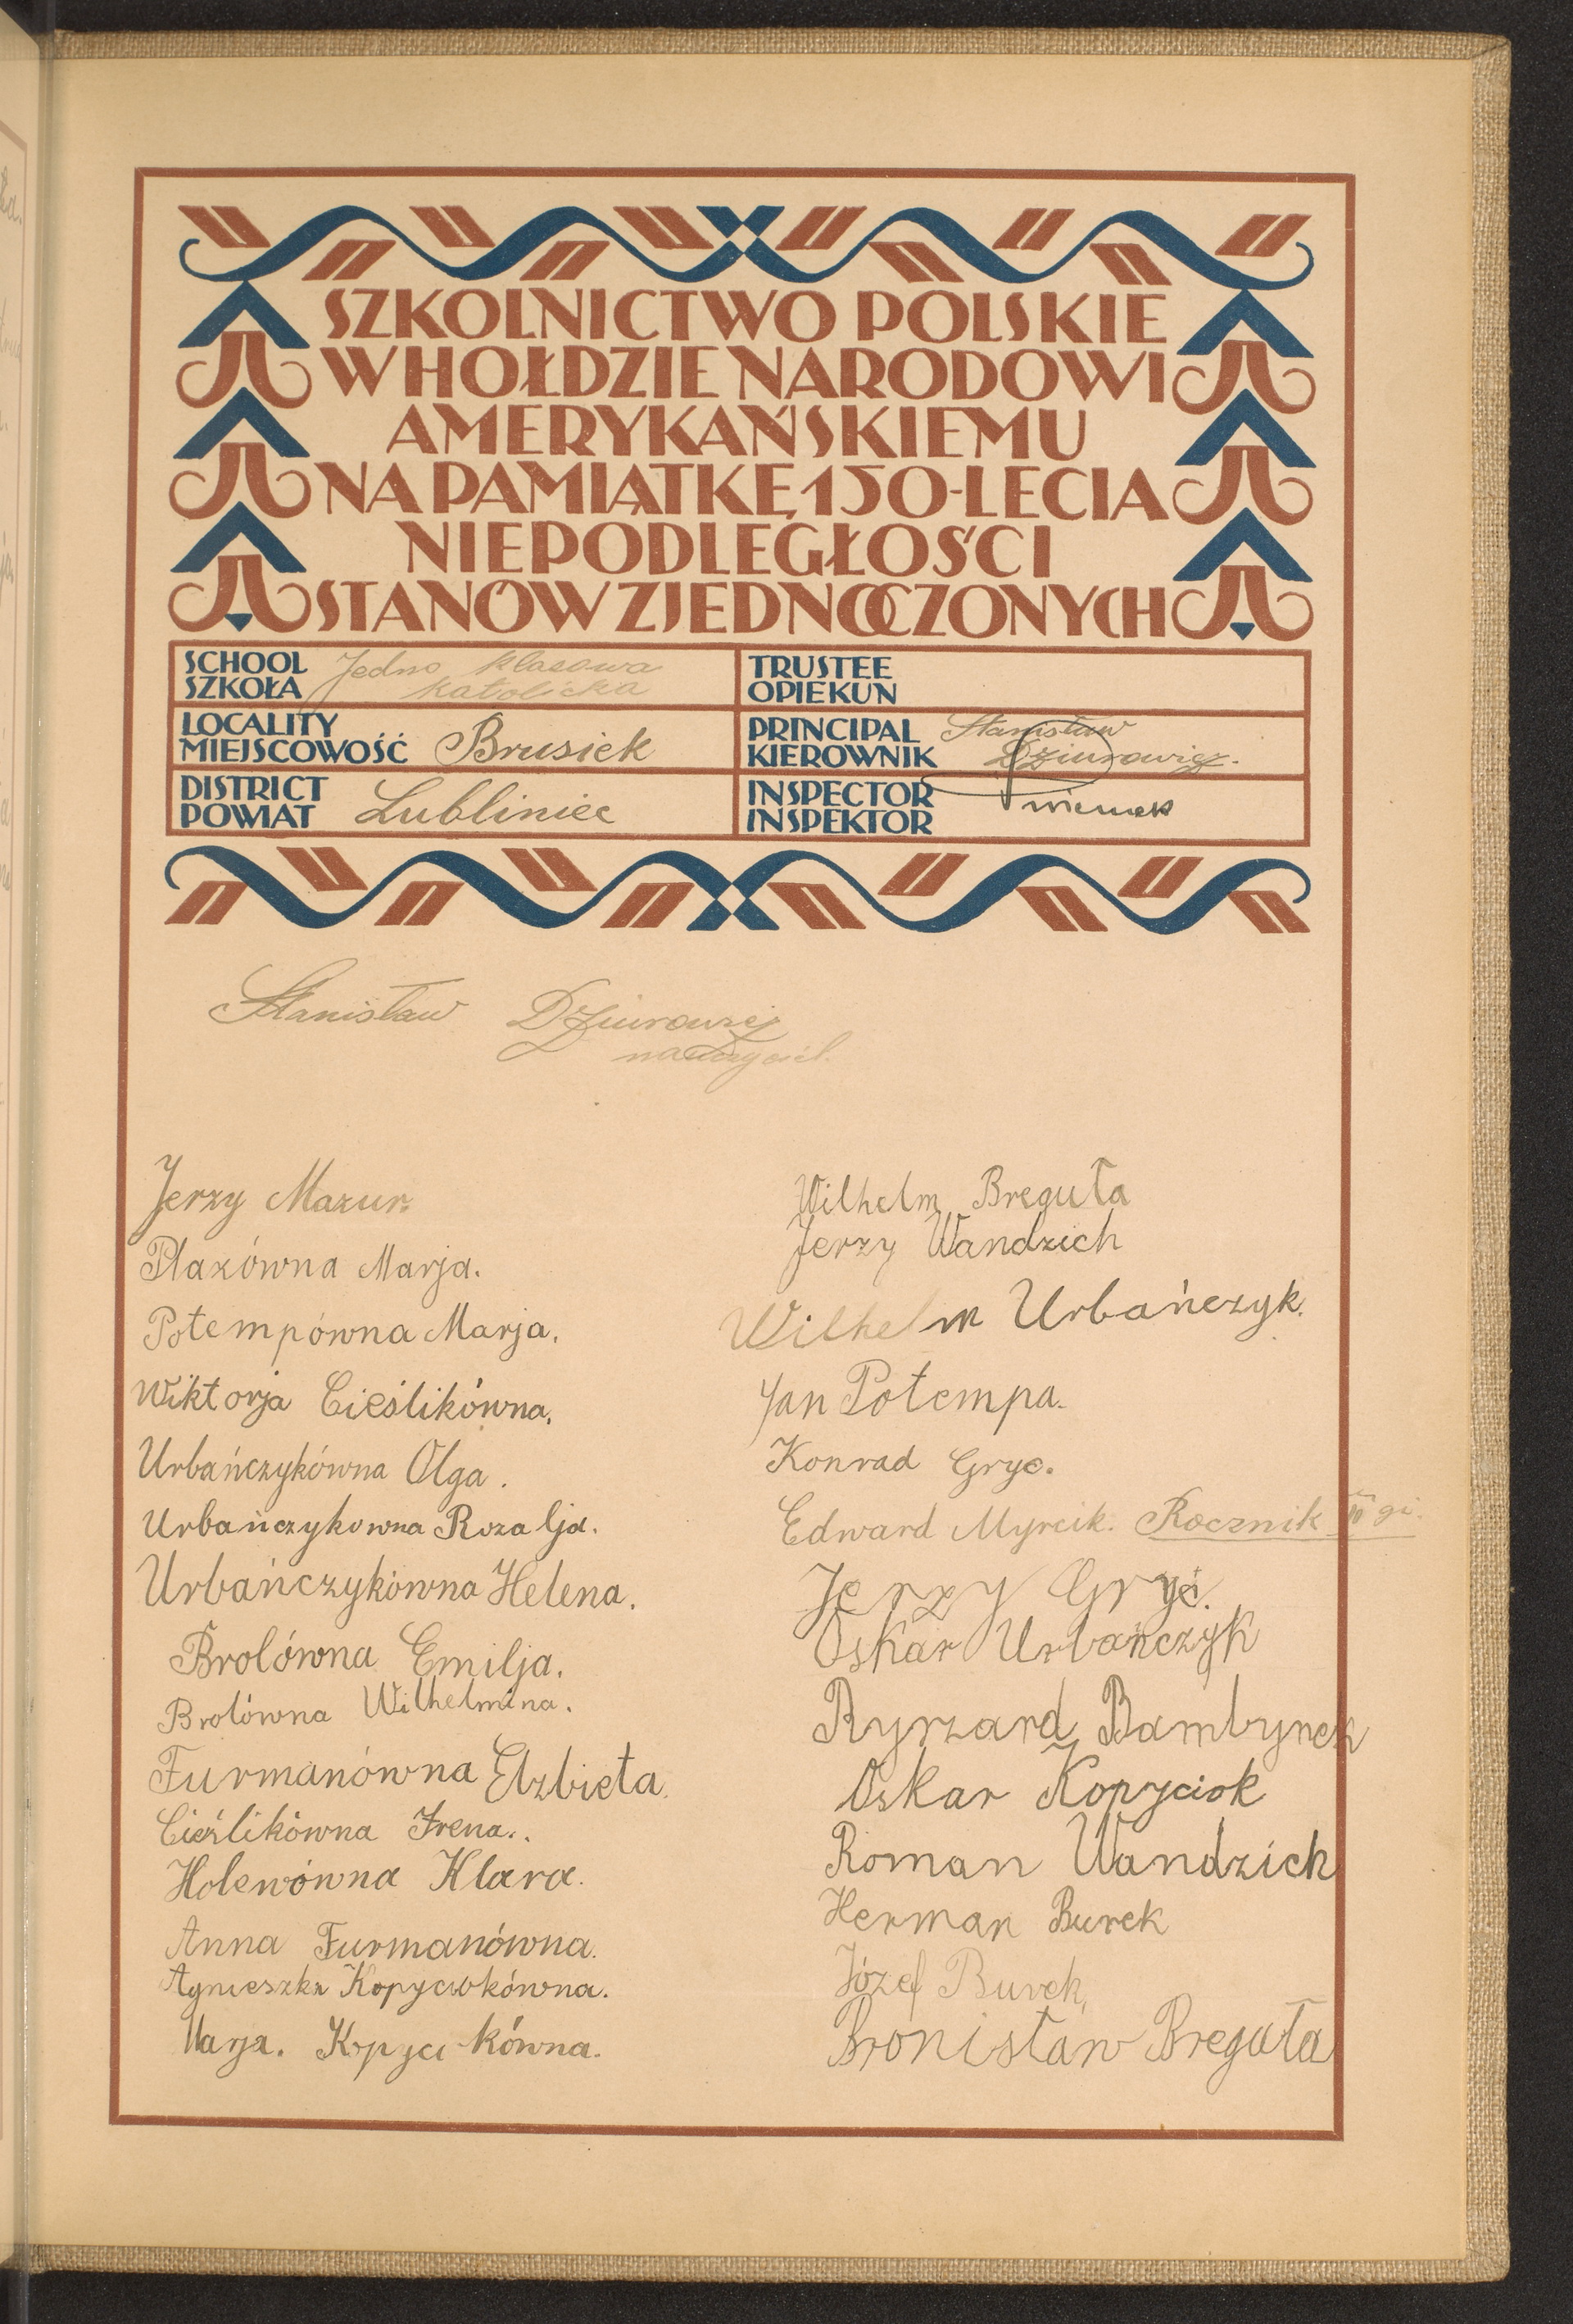 SZKOLNICTWO POLSKIE
W HOŁDZIE NARODOWI
AMERYKAŃSKIEMU
NA PAMIĄTKĘ 150-LECIA
NIEPODLEGŁOŚCI
STANÓW ZJEDNOCZONYCH
SCHOOL
SZKOŁA
Jedno klasowa
katolicka
TRUSTEE
OPIEKUN
LOCALITY
MIEJSCOWOŚĆ
Brusiek
PRINCIPAL
KIEROWNIK
Stanisław
DISTRICT
POWIAT
Lubliniec
INSPECTOR
INSPEKTOR
Stanisław
Jerzy Mazur.
Płazówna Marja.
Potempówna Marja.
Wiktorja Cieślikówna.
Urbańczykówna Olga.
Urbańczykowna Rozalja.
Urbańczykówna Helena.
Brolówna Emilja.
Brolówna Wilhelmina.
Furmanówna Elzbieta.
Cieślikówna Irena.
Holewówna Klara.
Anna Furmanówna.
Agnieszka Kopyciokówna.
Marja.
Wilhelm Breguła
Jerzy Wandzich
Wilhelm Urbańczyk.
Jan Potempa.
Konrad Gryc.
Edward Myrcik. Rocznik
Jerzy Gryc.
Oskar Urbańczyk
Ryrzard Bambynek
Oskar Kopyciok
Roman Wandzich
Herman Burek
Józef Burek,
Bronisław Breguła